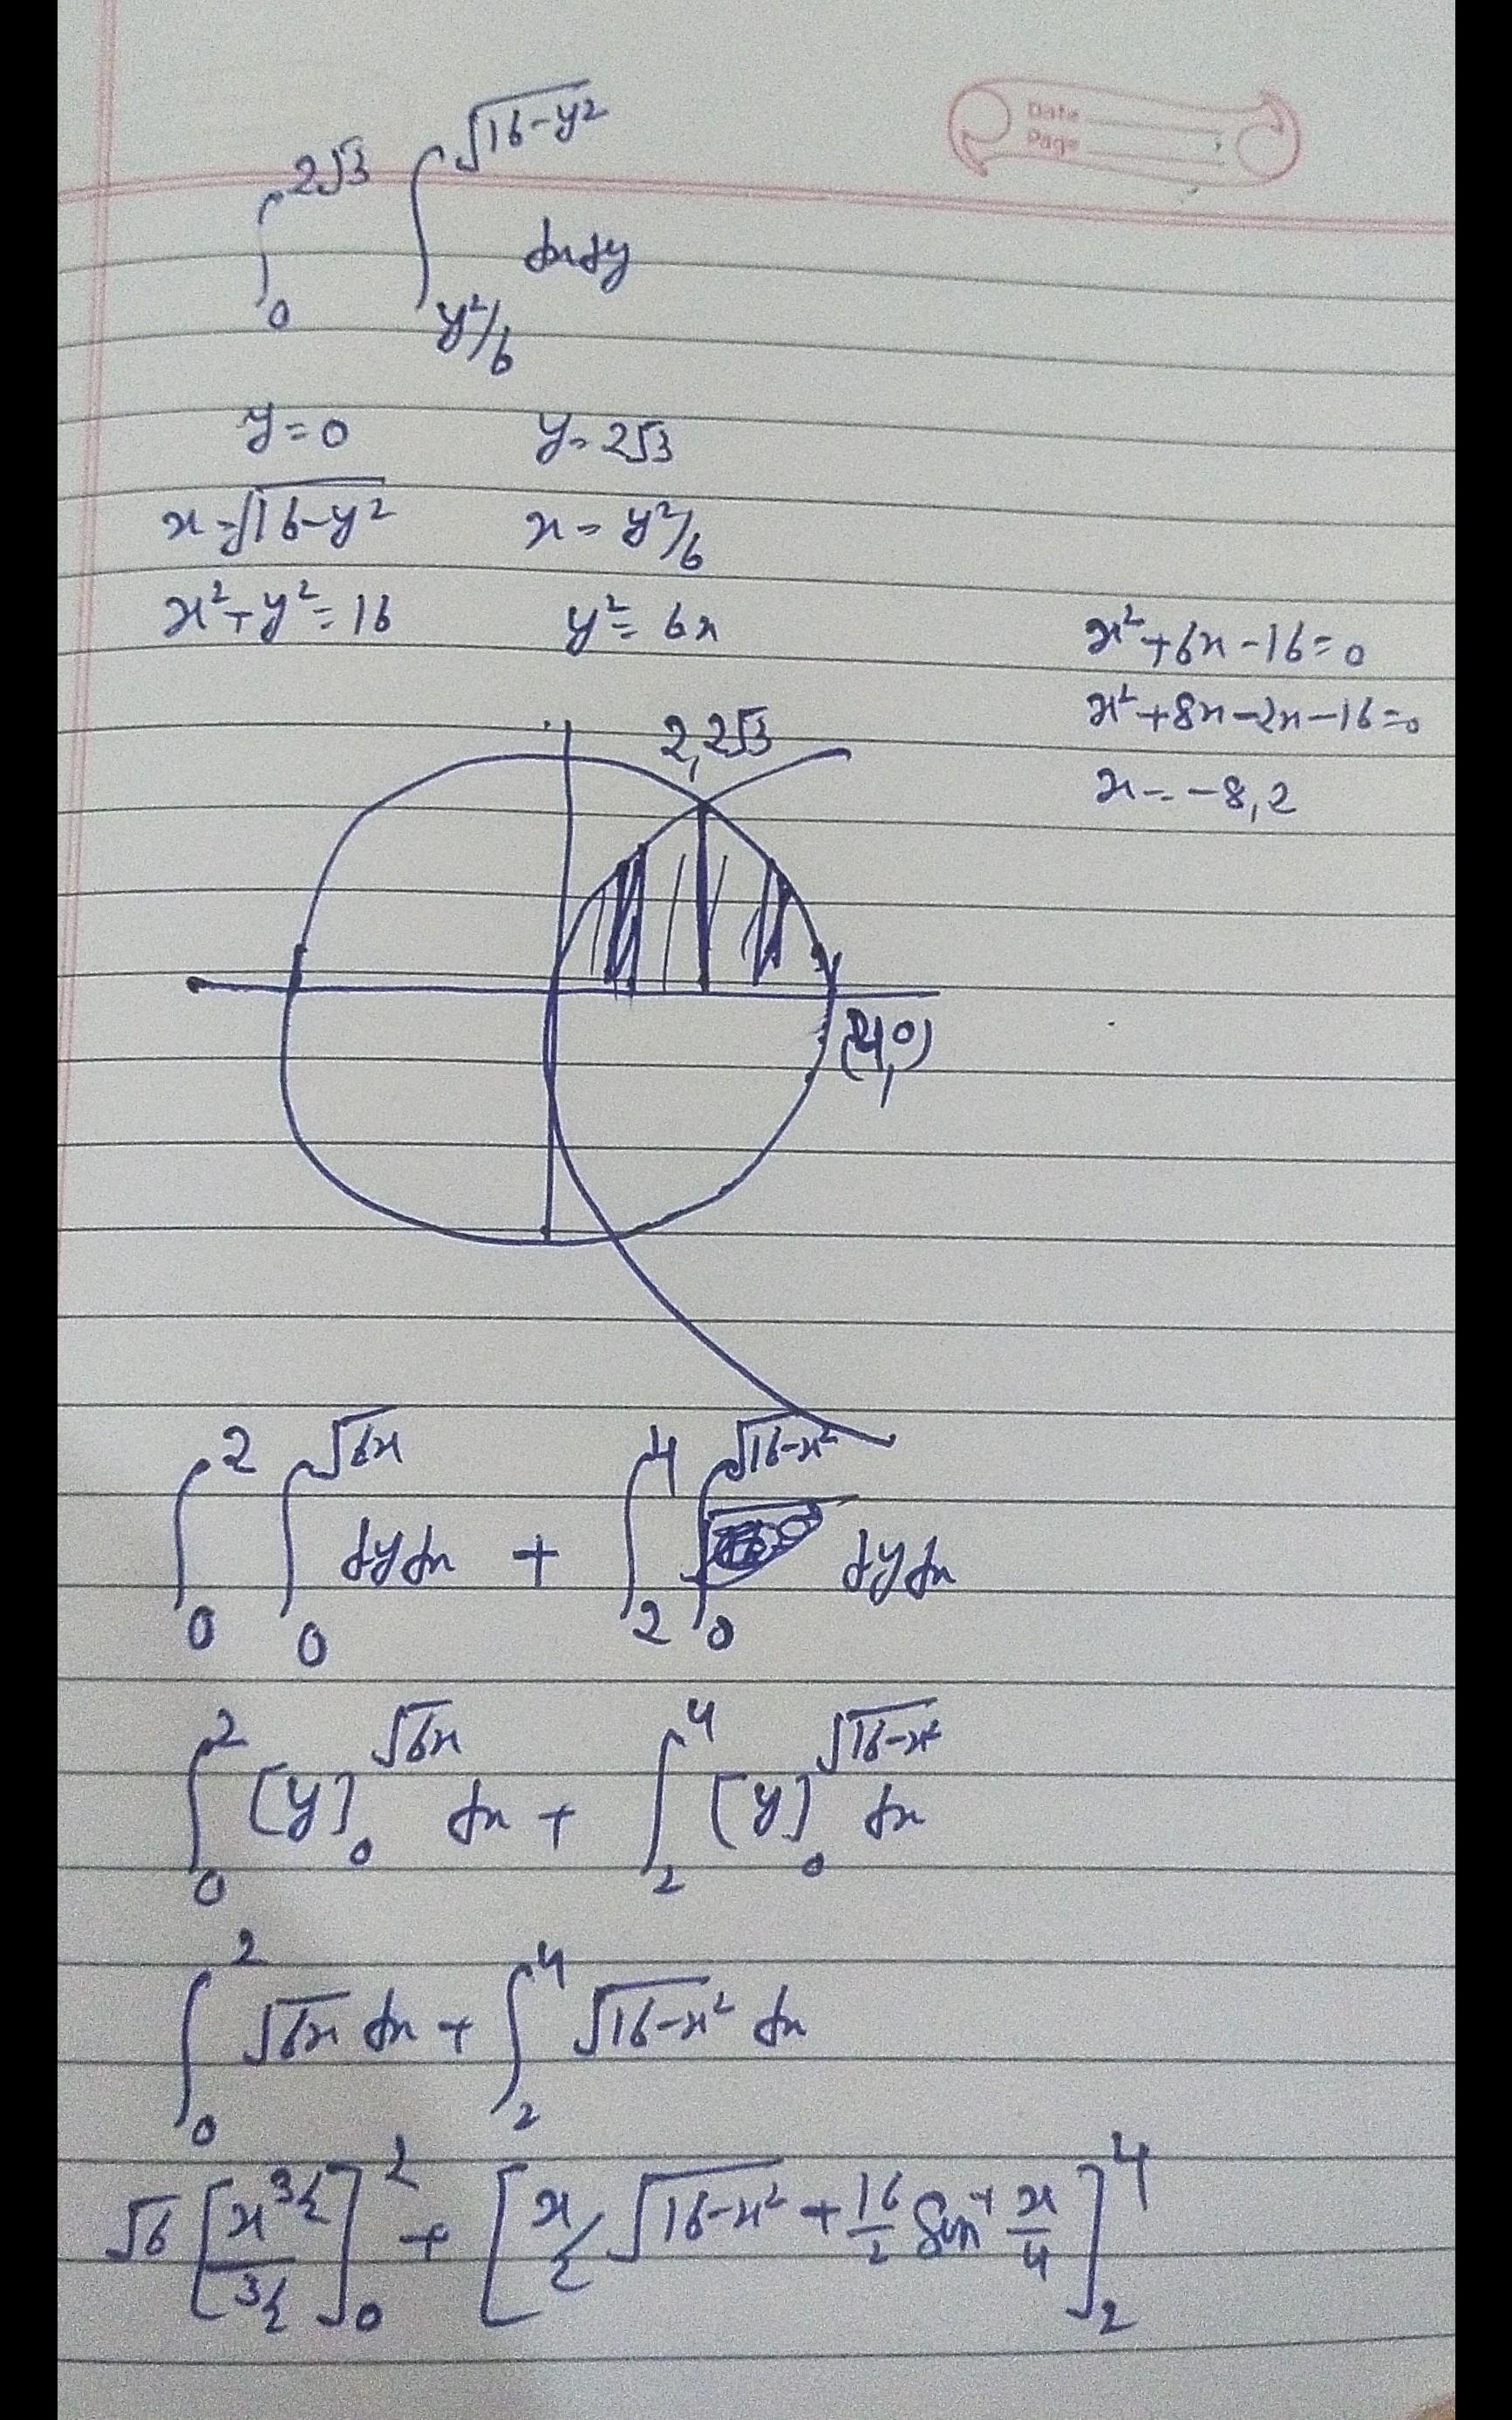 Date
Page
∫₀^{2√3} ∫_{y²/6}^{√16-y²} dxdy
y=0 y=2√3
x=√16-y² x=y²/6
x²+y²=16 y²=6x
x²+6x-16=0
x²+8x-2x-16=0
x=-8,2
2,2√3
(4,0)
∫₀² ∫₀^{√6x} dydx + ∫₂⁴ ∫₀^{√16-x²} dydx
∫₀² [y]₀^{√6x} dx + ∫₂⁴ [y]₀^{√16-x²} dx
∫₀² √6x dx + ∫₂⁴ √16-x² dx
√6 [x^{3/2} / 3/2]₀² + [x/2 √16-x² + 16/2 Sin⁻¹ x/4]₂⁴